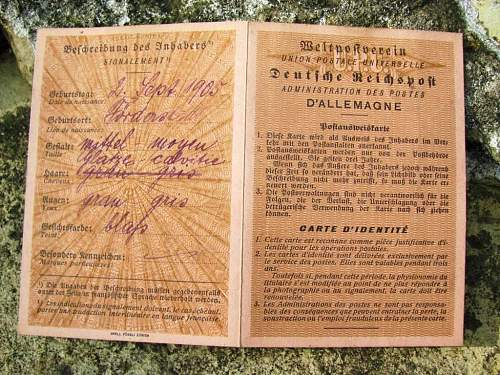 Beschreibung des Inhabers¹⁾
SIGNALEMENT¹⁾
Geburtstag: 2. Sept. 1905
Date de naissance:
Geburtsort:
Lieu de naissance:
Gestalt: mittel - moyen
Taille
Glatze - calvitie
Haare: gris
Cheveux
Augen: grau gris
Yeux
Gesichtsfarbe: blaß
Teint
Besondere Kennzeichen:
Marques particulières:
¹⁾ Die Angaben der Beschreibung müssen gegebenenfalls
unter der Seite in französischer Sprache wiederholt werden.
Les indications du signalement doivent, le cas échéant,
porter une traduction interlinéaire en langue française.
Weltpostverein
UNION POSTALE UNIVERSELLE
Deutsche Reichspost
ADMINISTRATION DES POSTES
D'ALLEMAGNE
Postausweiskarte
1. Diese Karte wird als Ausweis des Inhabers im Ver-
kehr mit den Postanstalten anerkannt.
2. Postausweiskarten werden nur von der Postbehörde
ausgestellt. Sie gelten drei Jahre.
Wenn sich das Äußere des Inhabers jedoch während
dieser Frist so verändert hat, daß sein Lichtbild oder seine
Beschreibung nicht mehr zutrifft, so muß die Karte er-
neuert werden.
3. Die Postverwaltungen sind nicht verantwortlich für die
Folgen, die der Verlust, die Unterschlagung oder die
betrügerische Verwendung der Karte nach sich ziehen
können.
CARTE D'IDENTITÉ
1. Cette carte est reconnue comme pièce justificative d'i-
dentité pour les opérations postales.
2. Les cartes d'identité sont délivrées exclusivement par
le service des postes. Elles sont valables pendant trois
ans.
Toutefois si, pendant cette période, la physionomie du
titulaire s'est modifiée au point de ne plus répondre à
la photographie ou au signalement, la carte doit être
renouvelée.
3. Les Administrations des postes ne sont pas responsa-
bles des conséquences que peuvent entraîner la perte, la
soustraction ou l'emploi frauduleux de la présente carte.